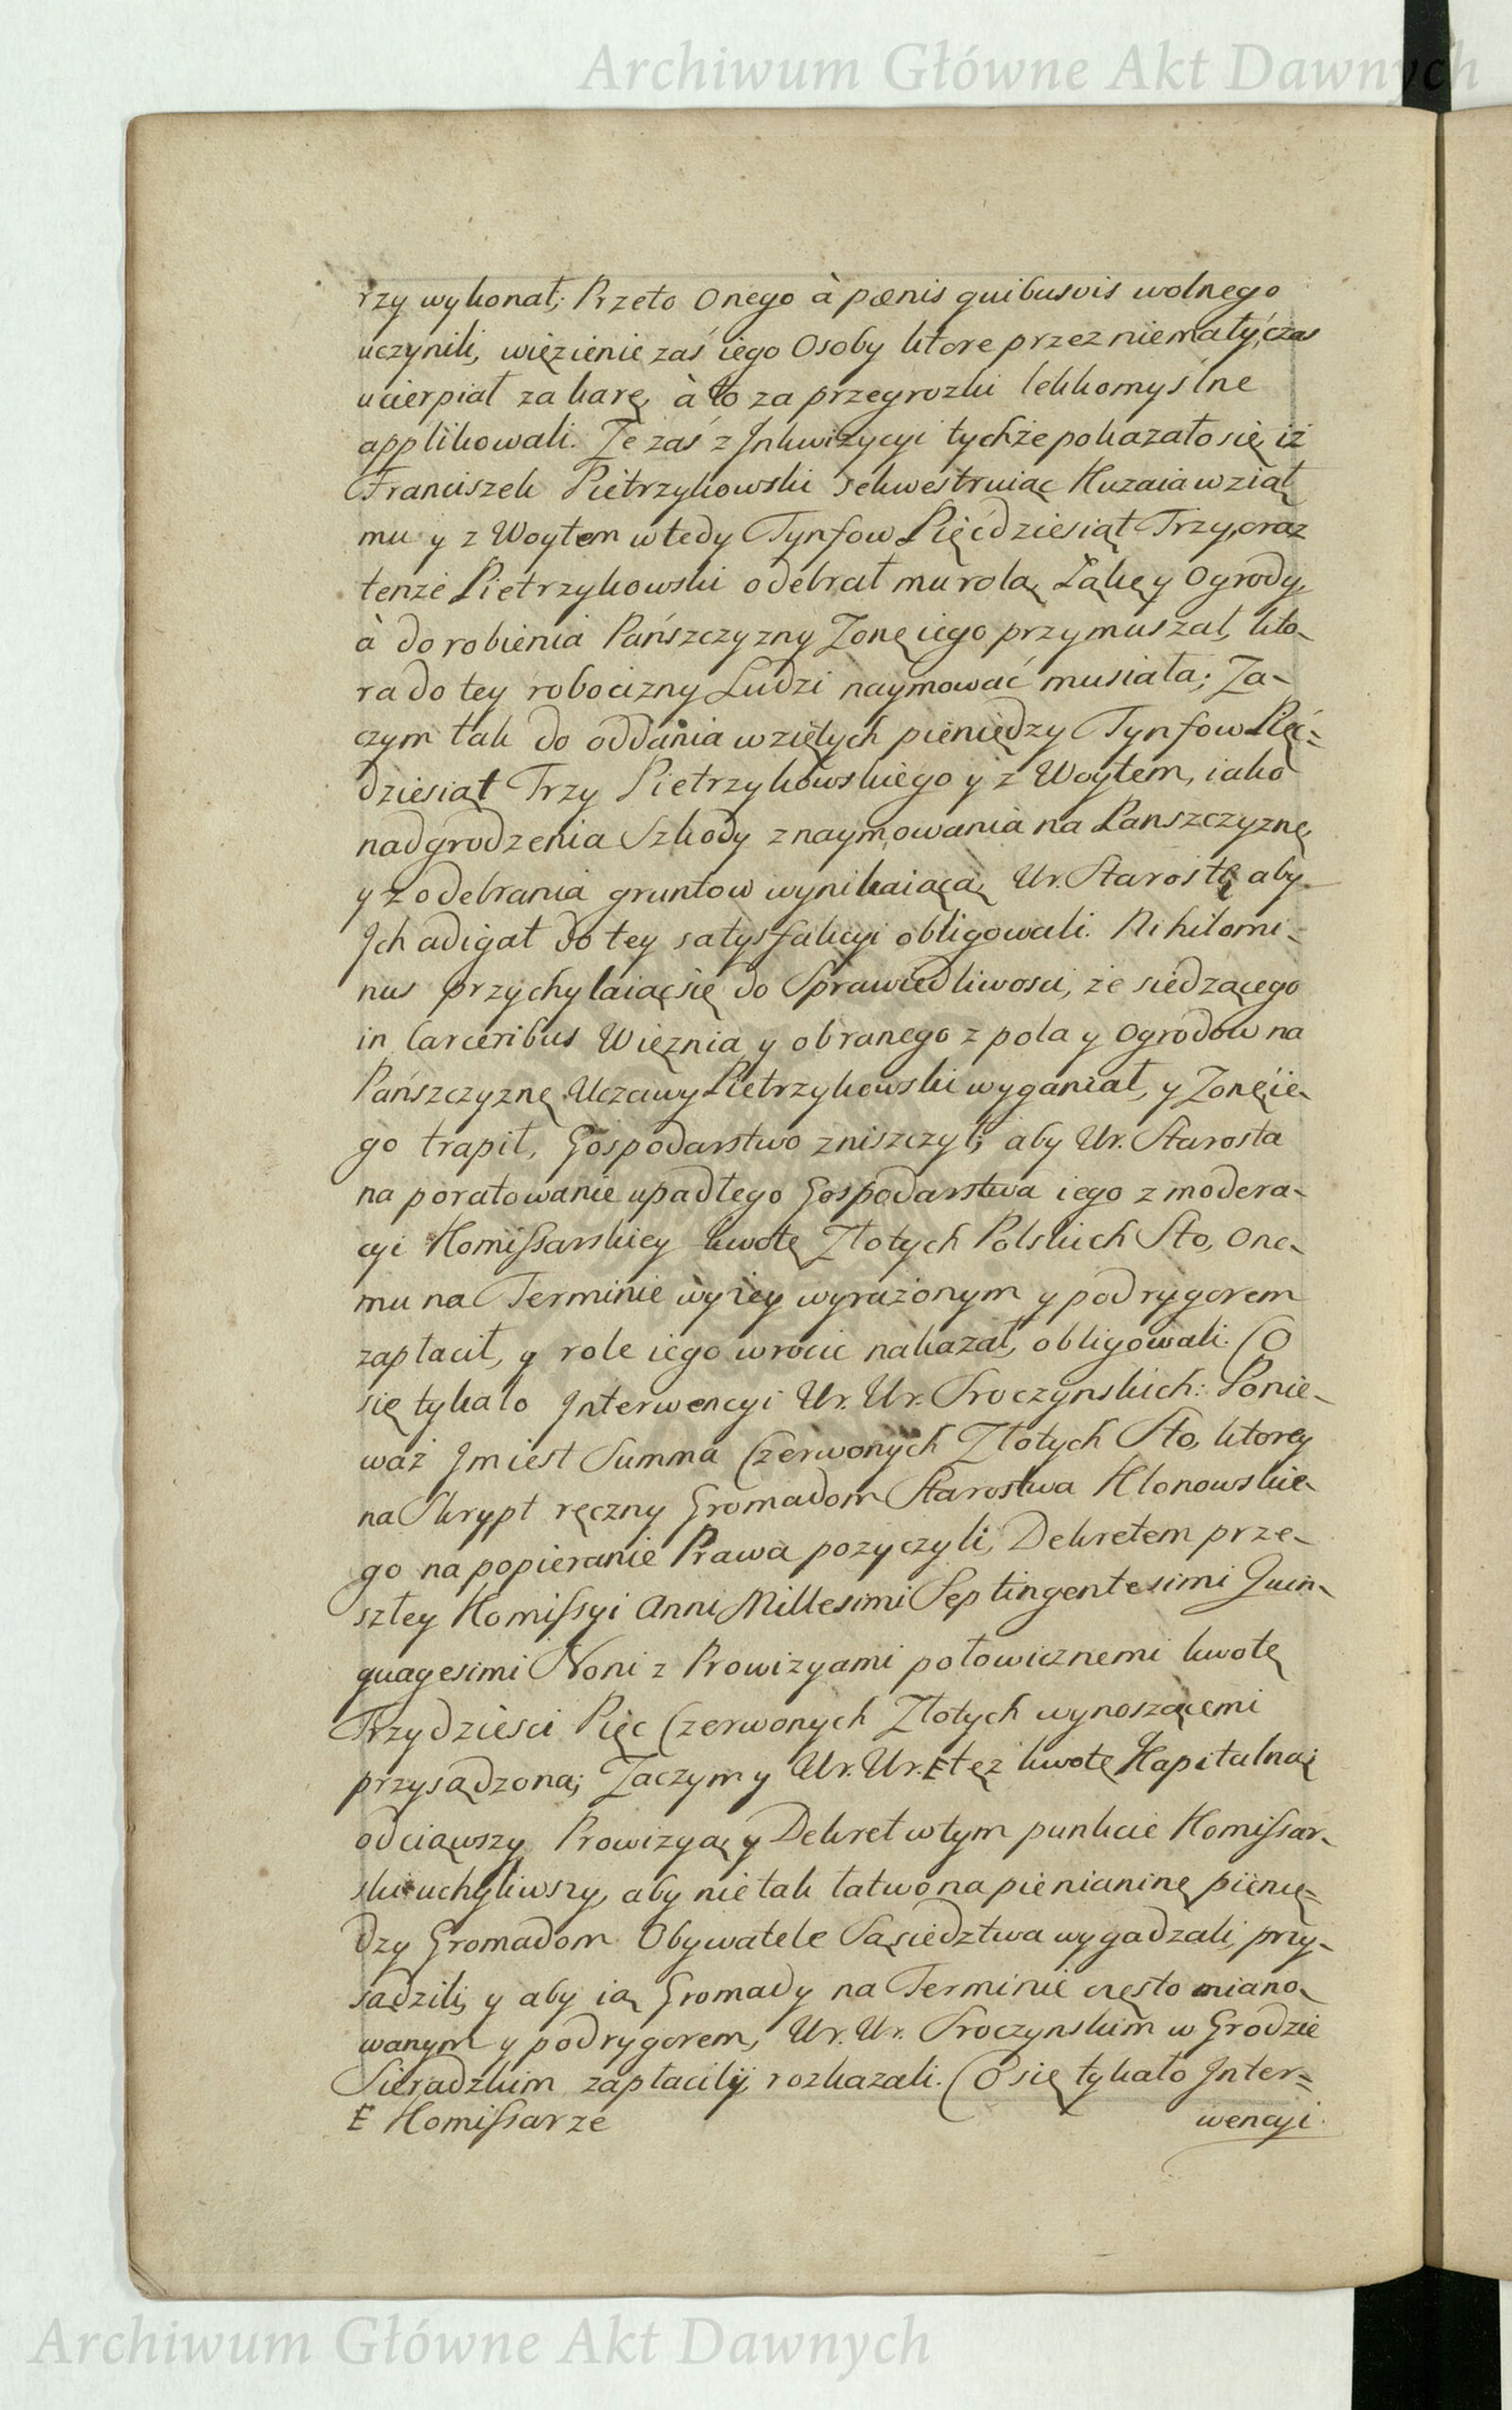 Archiwum Główne Akt Dawnych
rzy wykonał; Przeto Onego à pœnis quibusvis wolnego
uczynili, więzienie zaś iego Osoby ktore przez niemały czas
ucierpiał za karę, à to za przegrozki lekkomyślne
applikowali. Że zaś z Inkwizycyi tychże pokazało się iż
Franciszek Pietrzykowski sekwestruiąc Kuzaia wziął
mu y z Woytem wtedy Tynfow Pięćdziesiąt Trzy, oraz
tenże Pietrzykowski odebrał mu rolą, Łąkę y Ogrody,
à do robienia Pańszczyzny Zonę iego przymuszał, kto-
ra do tey robocizny Ludzi naymować musiała; Za-
czym tak do oddania wziętych pieniędzy Tynfow Pięć=
dziesiąt Trzy Pietrzykowskiego y z Woytem, iako
nadgrodzenia Szkody z naymowania na Panszczyznę,
y z odebrania gruntow wynikaiącą, Ur. Starostę aby
Ich adigał do tey satysfakcyi obligowali. Nihilomi-
nus przychylaiąc się do Sprawiedliwosci, że siedzącego
in Carceribus Więznia y obranego z pola y Ogrodow na
Pańszczyznę Uczciwy Pietrzykowski wyganiał, y Zonę ie-
go trapił, Gospodarstwo zniszczył; aby Ur. Starosta
na poratowanie upadłego Gospodarstwa iego z modera-
cyi Komissarskiey kwotę Złotych Polskich Sto, One-
mu na Terminie wyżey wyrażonym y pod rygorem
zapłacił, y role iego wrocic nakazał, obligowali. Co
się tykało Interwencyi Ur. Ur. Sroczynskich: Ponie-
waż Im iest Summa Czerwonych Złotych Sto, ktorey
na Skrypt ręczny Gromadom Starostwa Klonowskie-
go na popieranie Prawa pozyczyli, Dekretem prze-
szłey Komissyi Anni Millesimi Septingentesimi Quin-
quagesimi Noni z Prowizyami połowicznemi kwotę
Trzydziesci Pięc Czerwonych Złotych wynoszącemi
przysądzona; Zaczym y Ur. Ur. E tęż kwotę Kapitalną
odciąwszy Prowizyą y Dekret w tym punkcie Komissar-
ski uchyliwszy, aby nie tak łatwo na pienianinę pienię=
dzy Gromadom Obywatele Sąsiedztwa wygadzali, przy-
sądzili, y aby ią Gromady na Terminie często miano-
wanym y pod rygorem, Ur. Ur. Sroczynskim w Grodzie
Sieradzkim zapłaciły, rozkazali. Co się tykało Inter=
E Komissarze wencyi.
Archiwum Główne Akt Dawnych